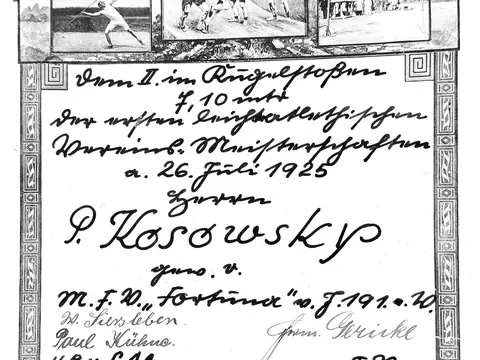 dem II. im Kugelstoßen
7,10 mtr
der ersten leichtatlethischen
Vereins-Meisterschaften
a. 26. Juli 1925
Herrn
P. Kosowsky
gew. v.
M.F.V. „Fortuna" v. J. 191.
W. Siersleben.
Paul Kühne. Herm. Gericke